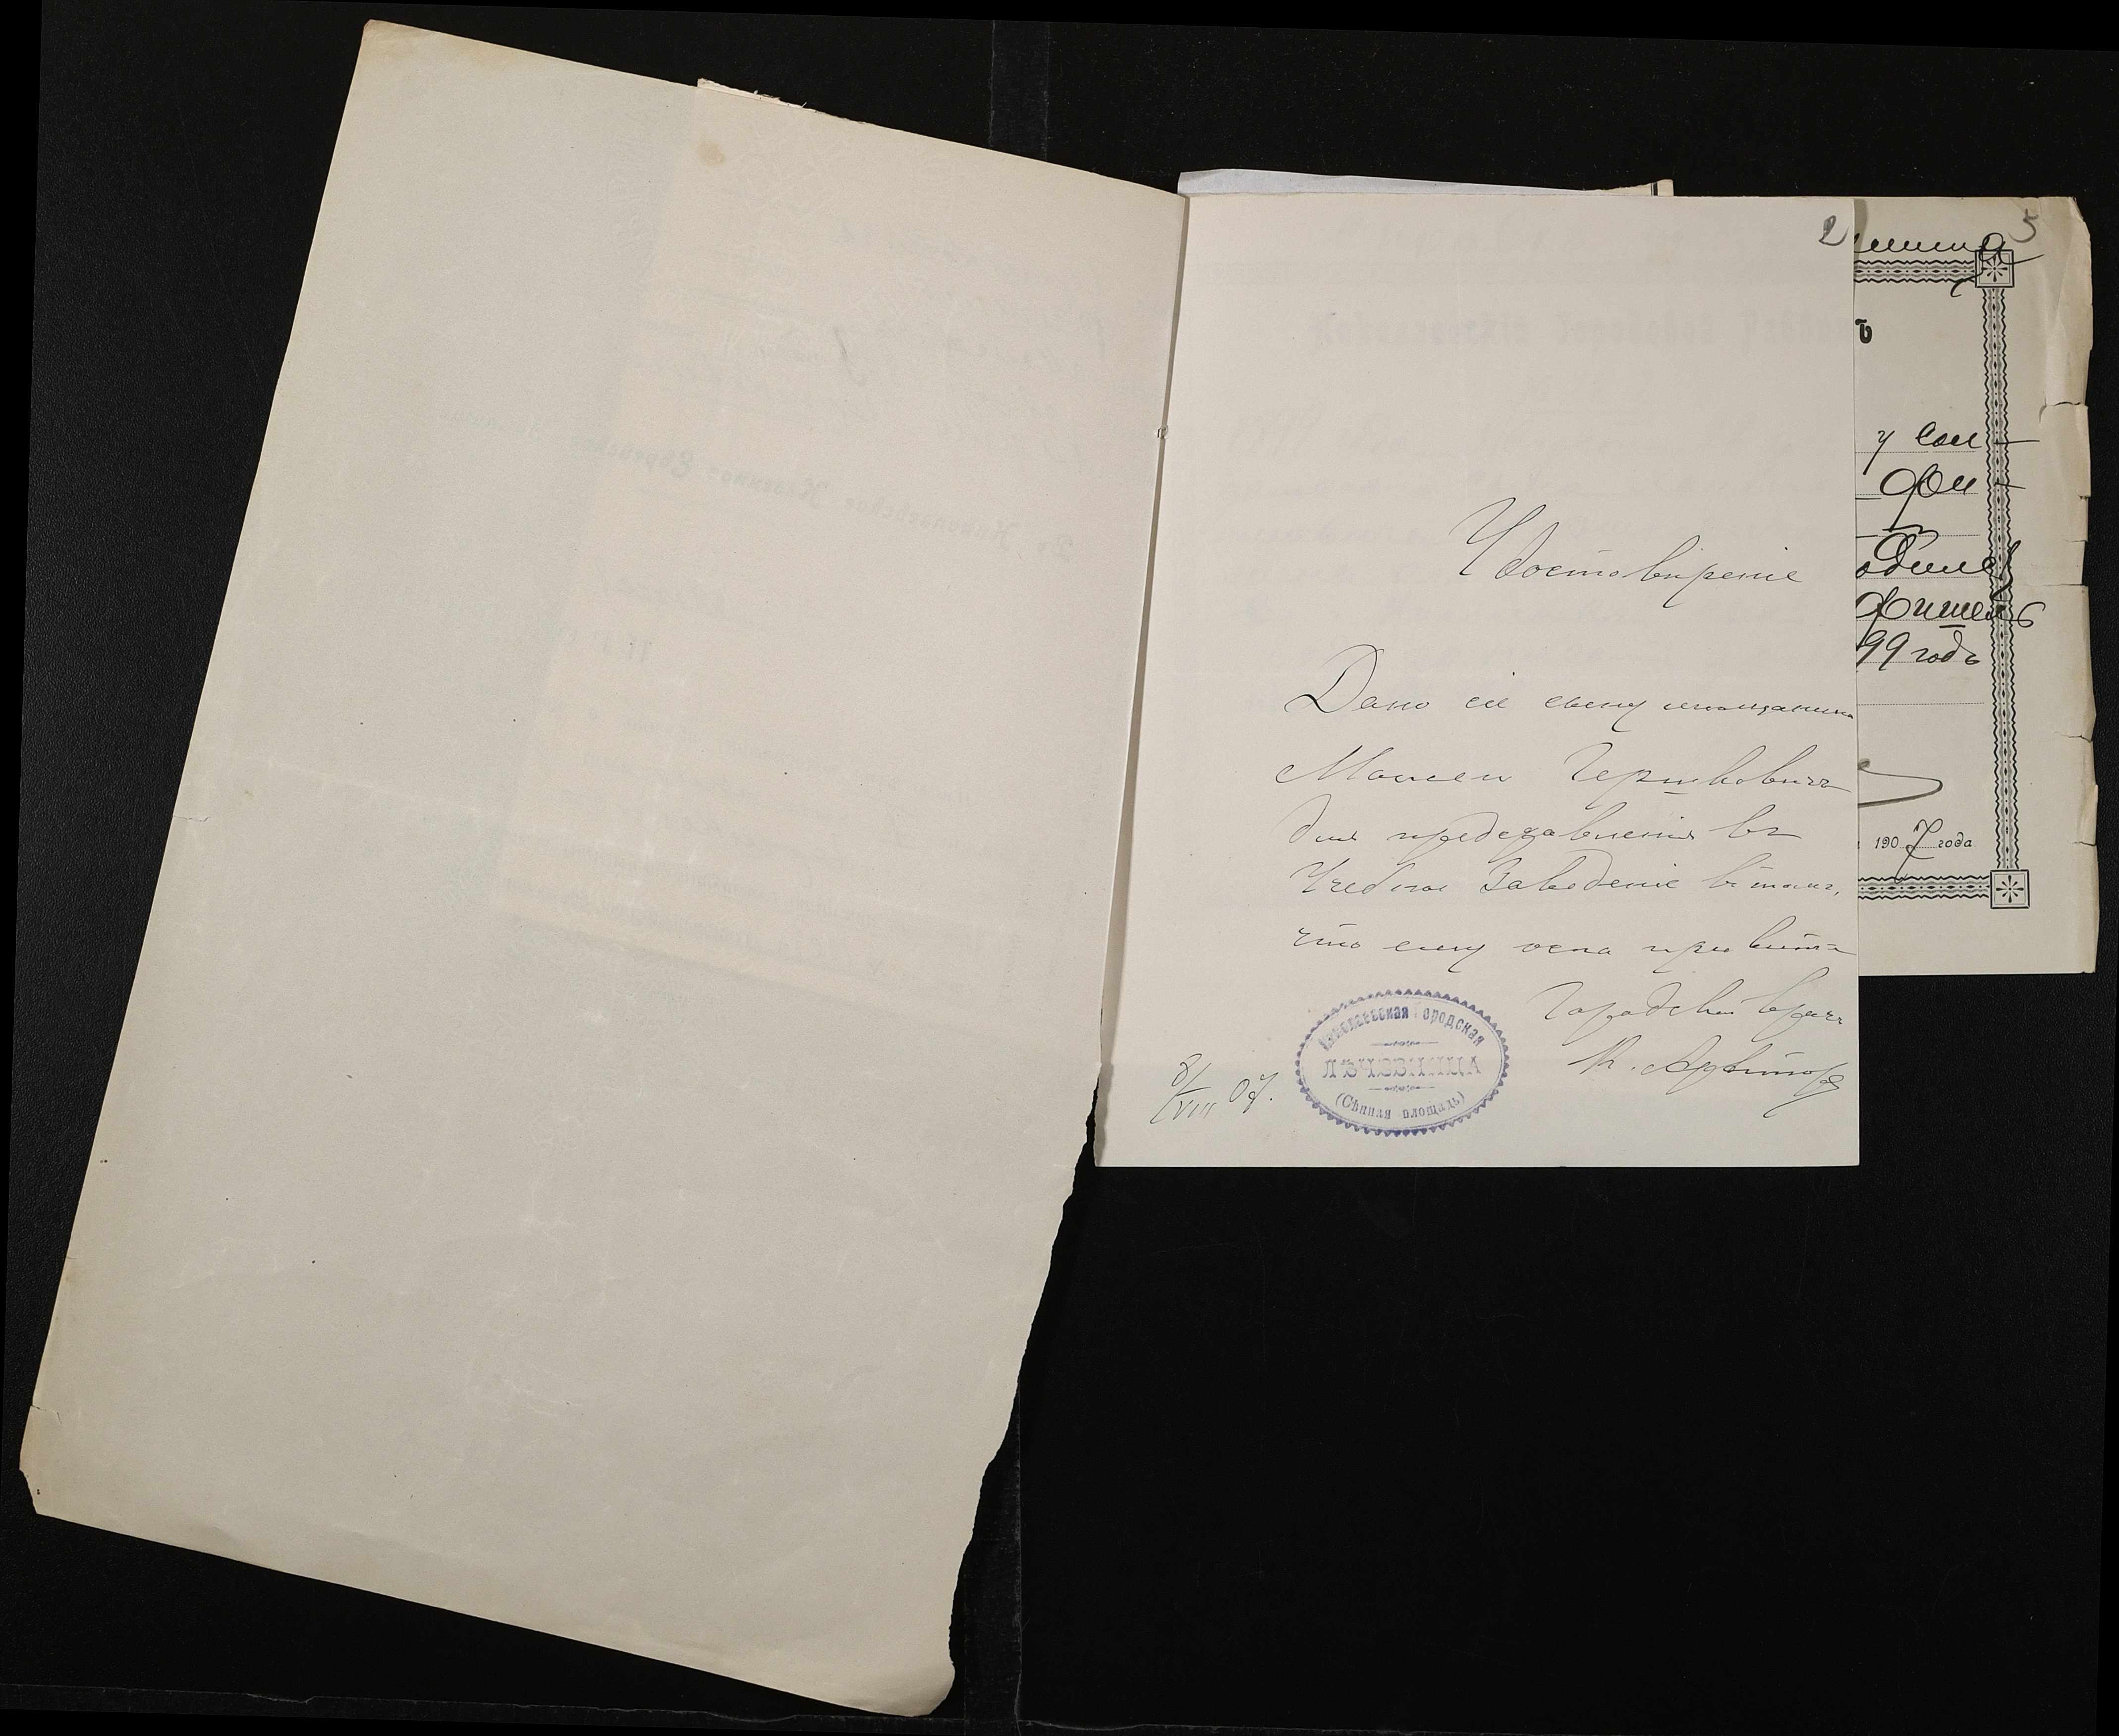 2
Удостовѣреніе
Дано сіе сыну мѣщанина
Мошен Гершковичъ
для представленія въ
Учебное Заведеніе въ томъ,
что ему оспа привита
Городской врачъ
8/VIII 07.
Николаевская Городская
ЛѢЧЕБНИЦА
(Сѣнная площадь)
5
ъ
у сол-
фи-
99 годъ
1907 года